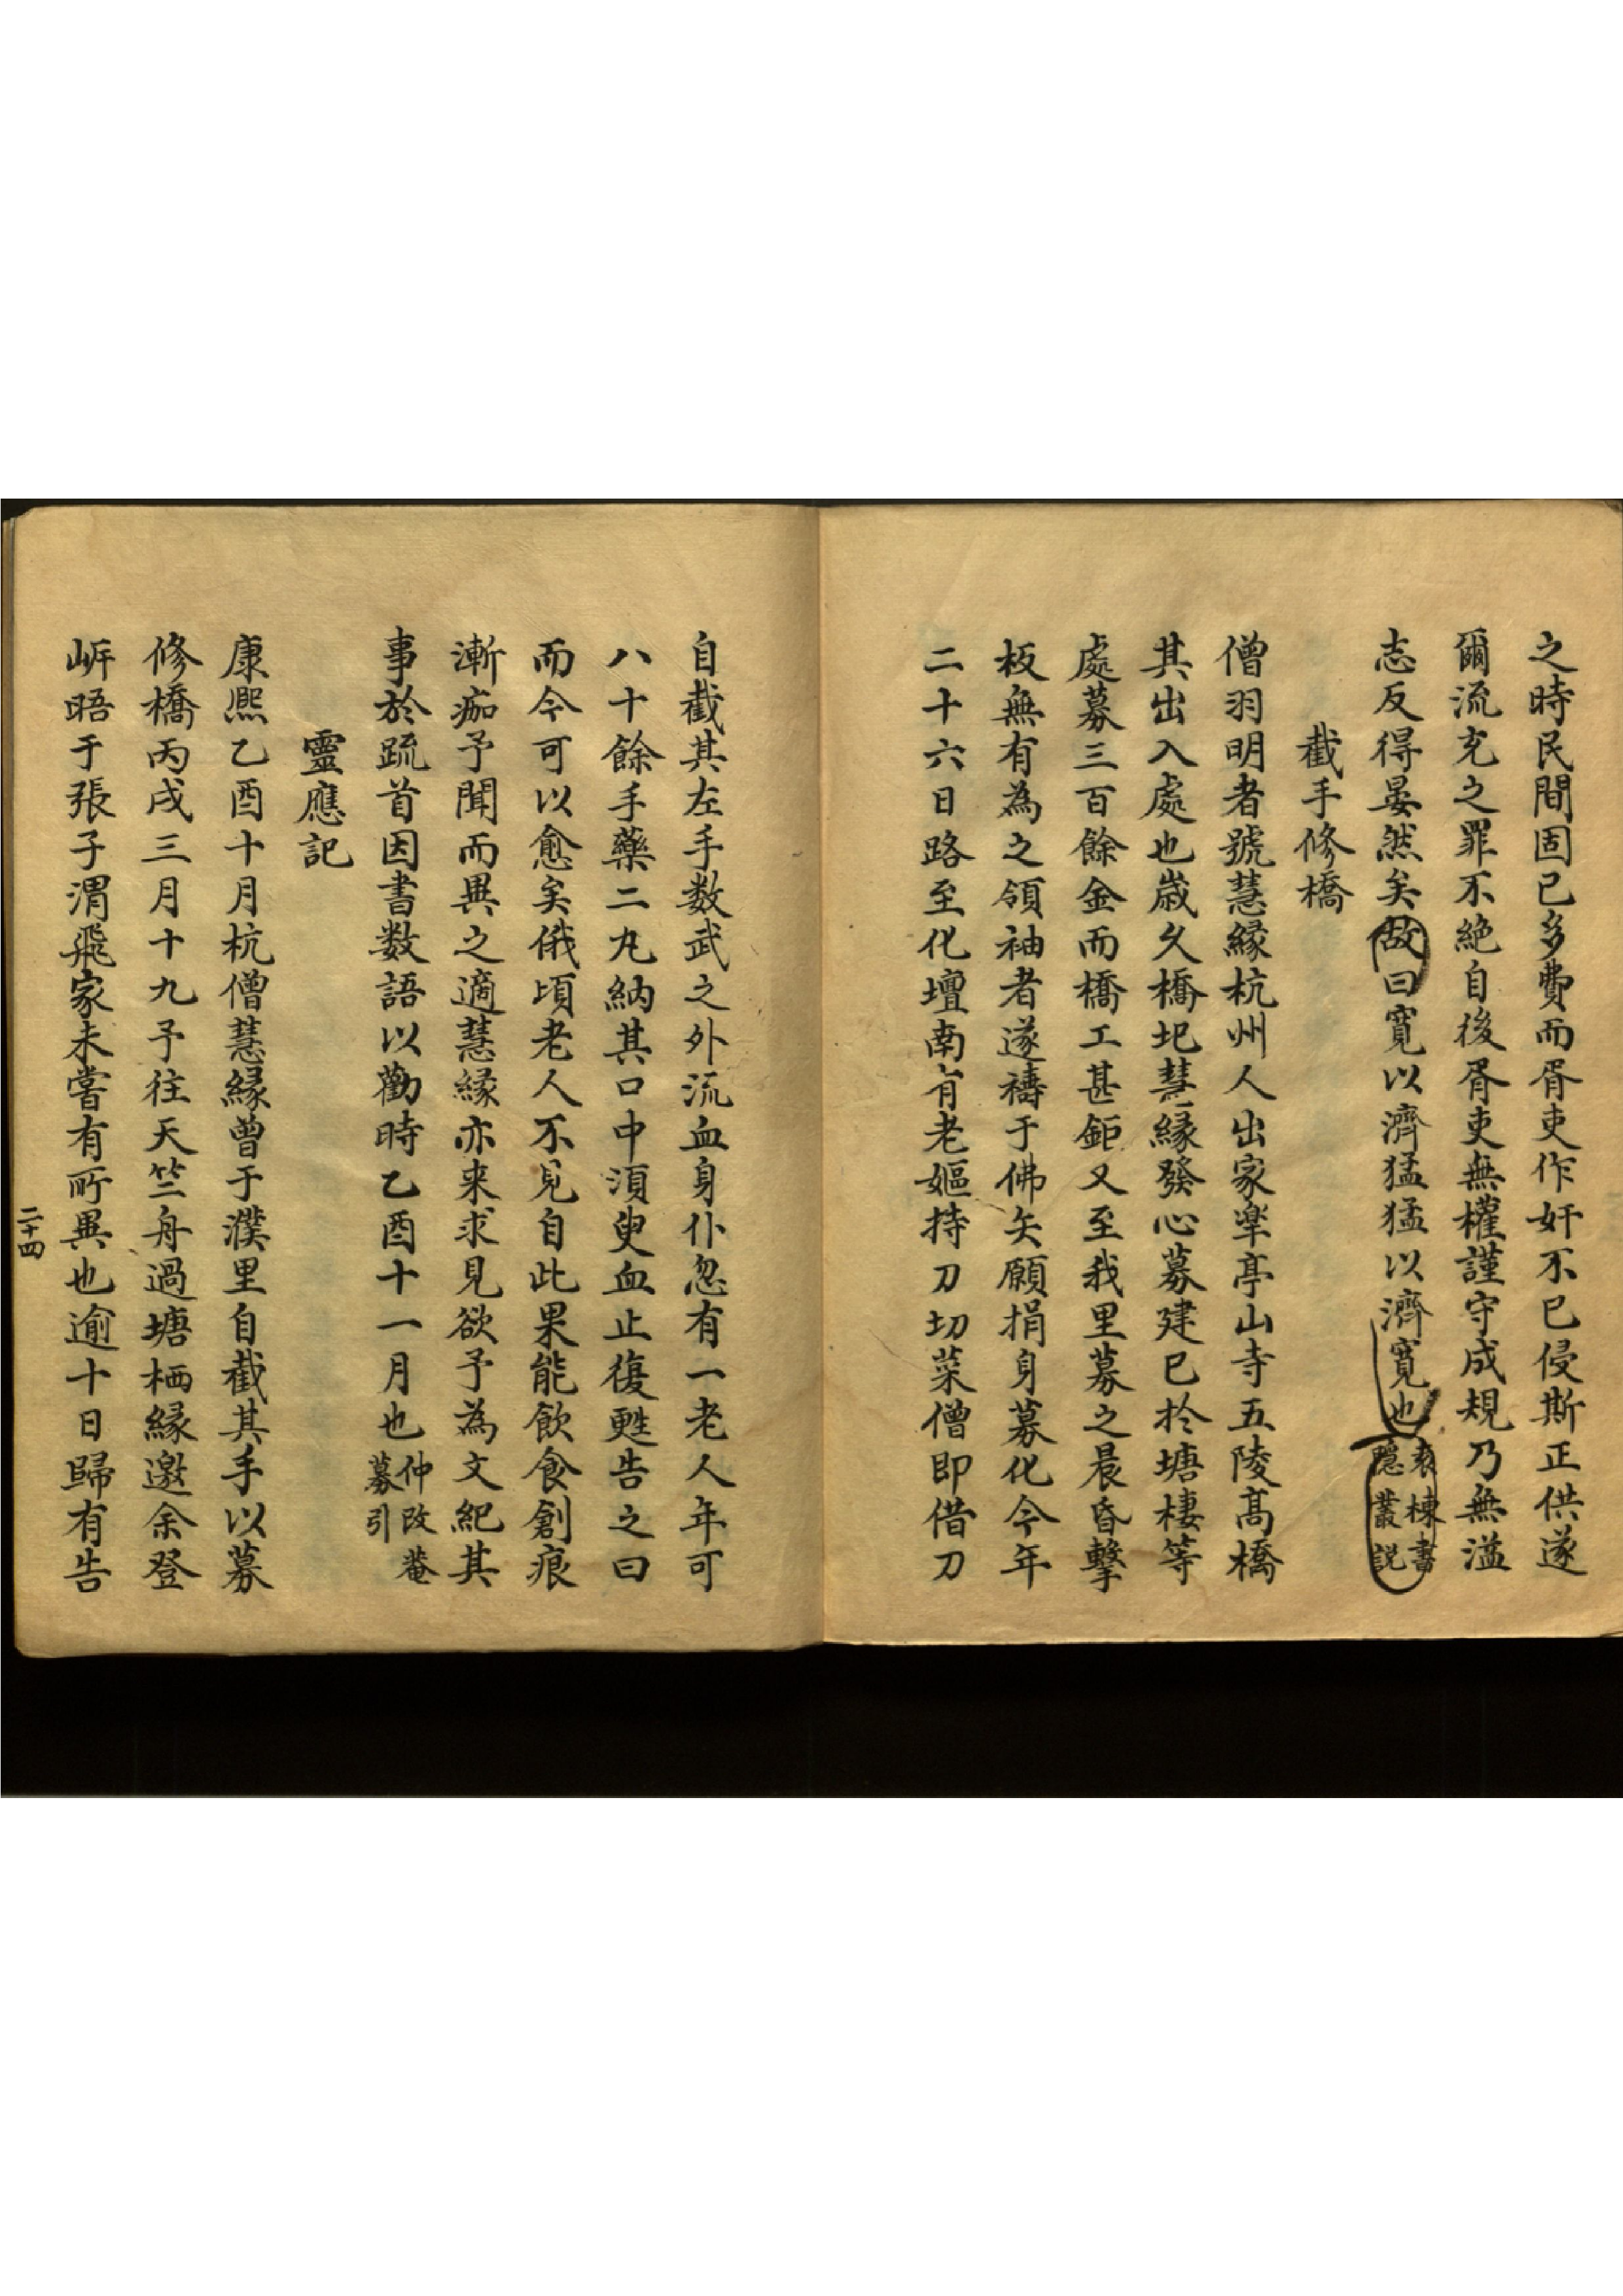 之時民間固已多費而胥吏作奸不已侵斯正供遂
爾流充之罪不絶自後胥吏無權謹守成規乃無濫
志反得晏然矣故曰寛以濟猛猛以濟寛也袁棟書隱叢説
截手修橋
僧羽明者號慧縁杭州人出家臯亭山寺五陵髙橋
其出入處也歳久橋圯慧縁發心募建已於塘棲等
處募三百餘金而橋工甚鉅又至我里募之晨昏擊
板無有為之領袖者遂禱于佛矢願捐身募化今年
二十六日路至化壇南有老嫗持刀切菜僧即借刀
自截其左手数武之外流血身仆忽有一老人年可
八十餘手藥二丸納其口中湏臾血止復甦告之曰
而今可以愈矣俄頃老人不見自此果能飲食創痕
漸痂予聞而異之適慧縁亦来求見欲予為文紀其
事於疏首因書数語以勸時乙酉十一月也仲改菴募引
靈應記
康熙乙酉十月杭僧慧縁曽于濮里自截其手以募
修橋丙戌三月十九予往天竺舟過塘栖縁邀余登
㟁晤于張子渭飛家未嘗有所異也逾十日歸有告
二十四